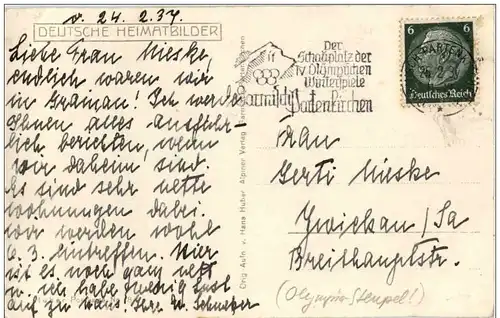 v. 24. 2. 37.
DEUTSCHE HEIMATBILDER
Liebe Frau Mieske,
endlich waren wir
in Grainau! Ich werde
Ihnen alles ausführ-
lich berichten, wenn
wir daheim sind.
Es sind sehr nette
Wohnungen dabei.
Wir werden wohl
6. 3. eintreffen. Hier
ist es noch ganz nett
u. ich habe wenig Lust
auf zu Haus! Ihre
Orig.-Aufn. v. Hans Huber, Alpiner Verlag
Der
Schauplatz der
IV. Olympischen
Winterspiele
Garmisch-
Partenkirchen
6 6
Deutsches Reich
Frau
Gerti Mieske
Zwickau/Sa
Breithauptstr.
(Olympia-Stempel!)